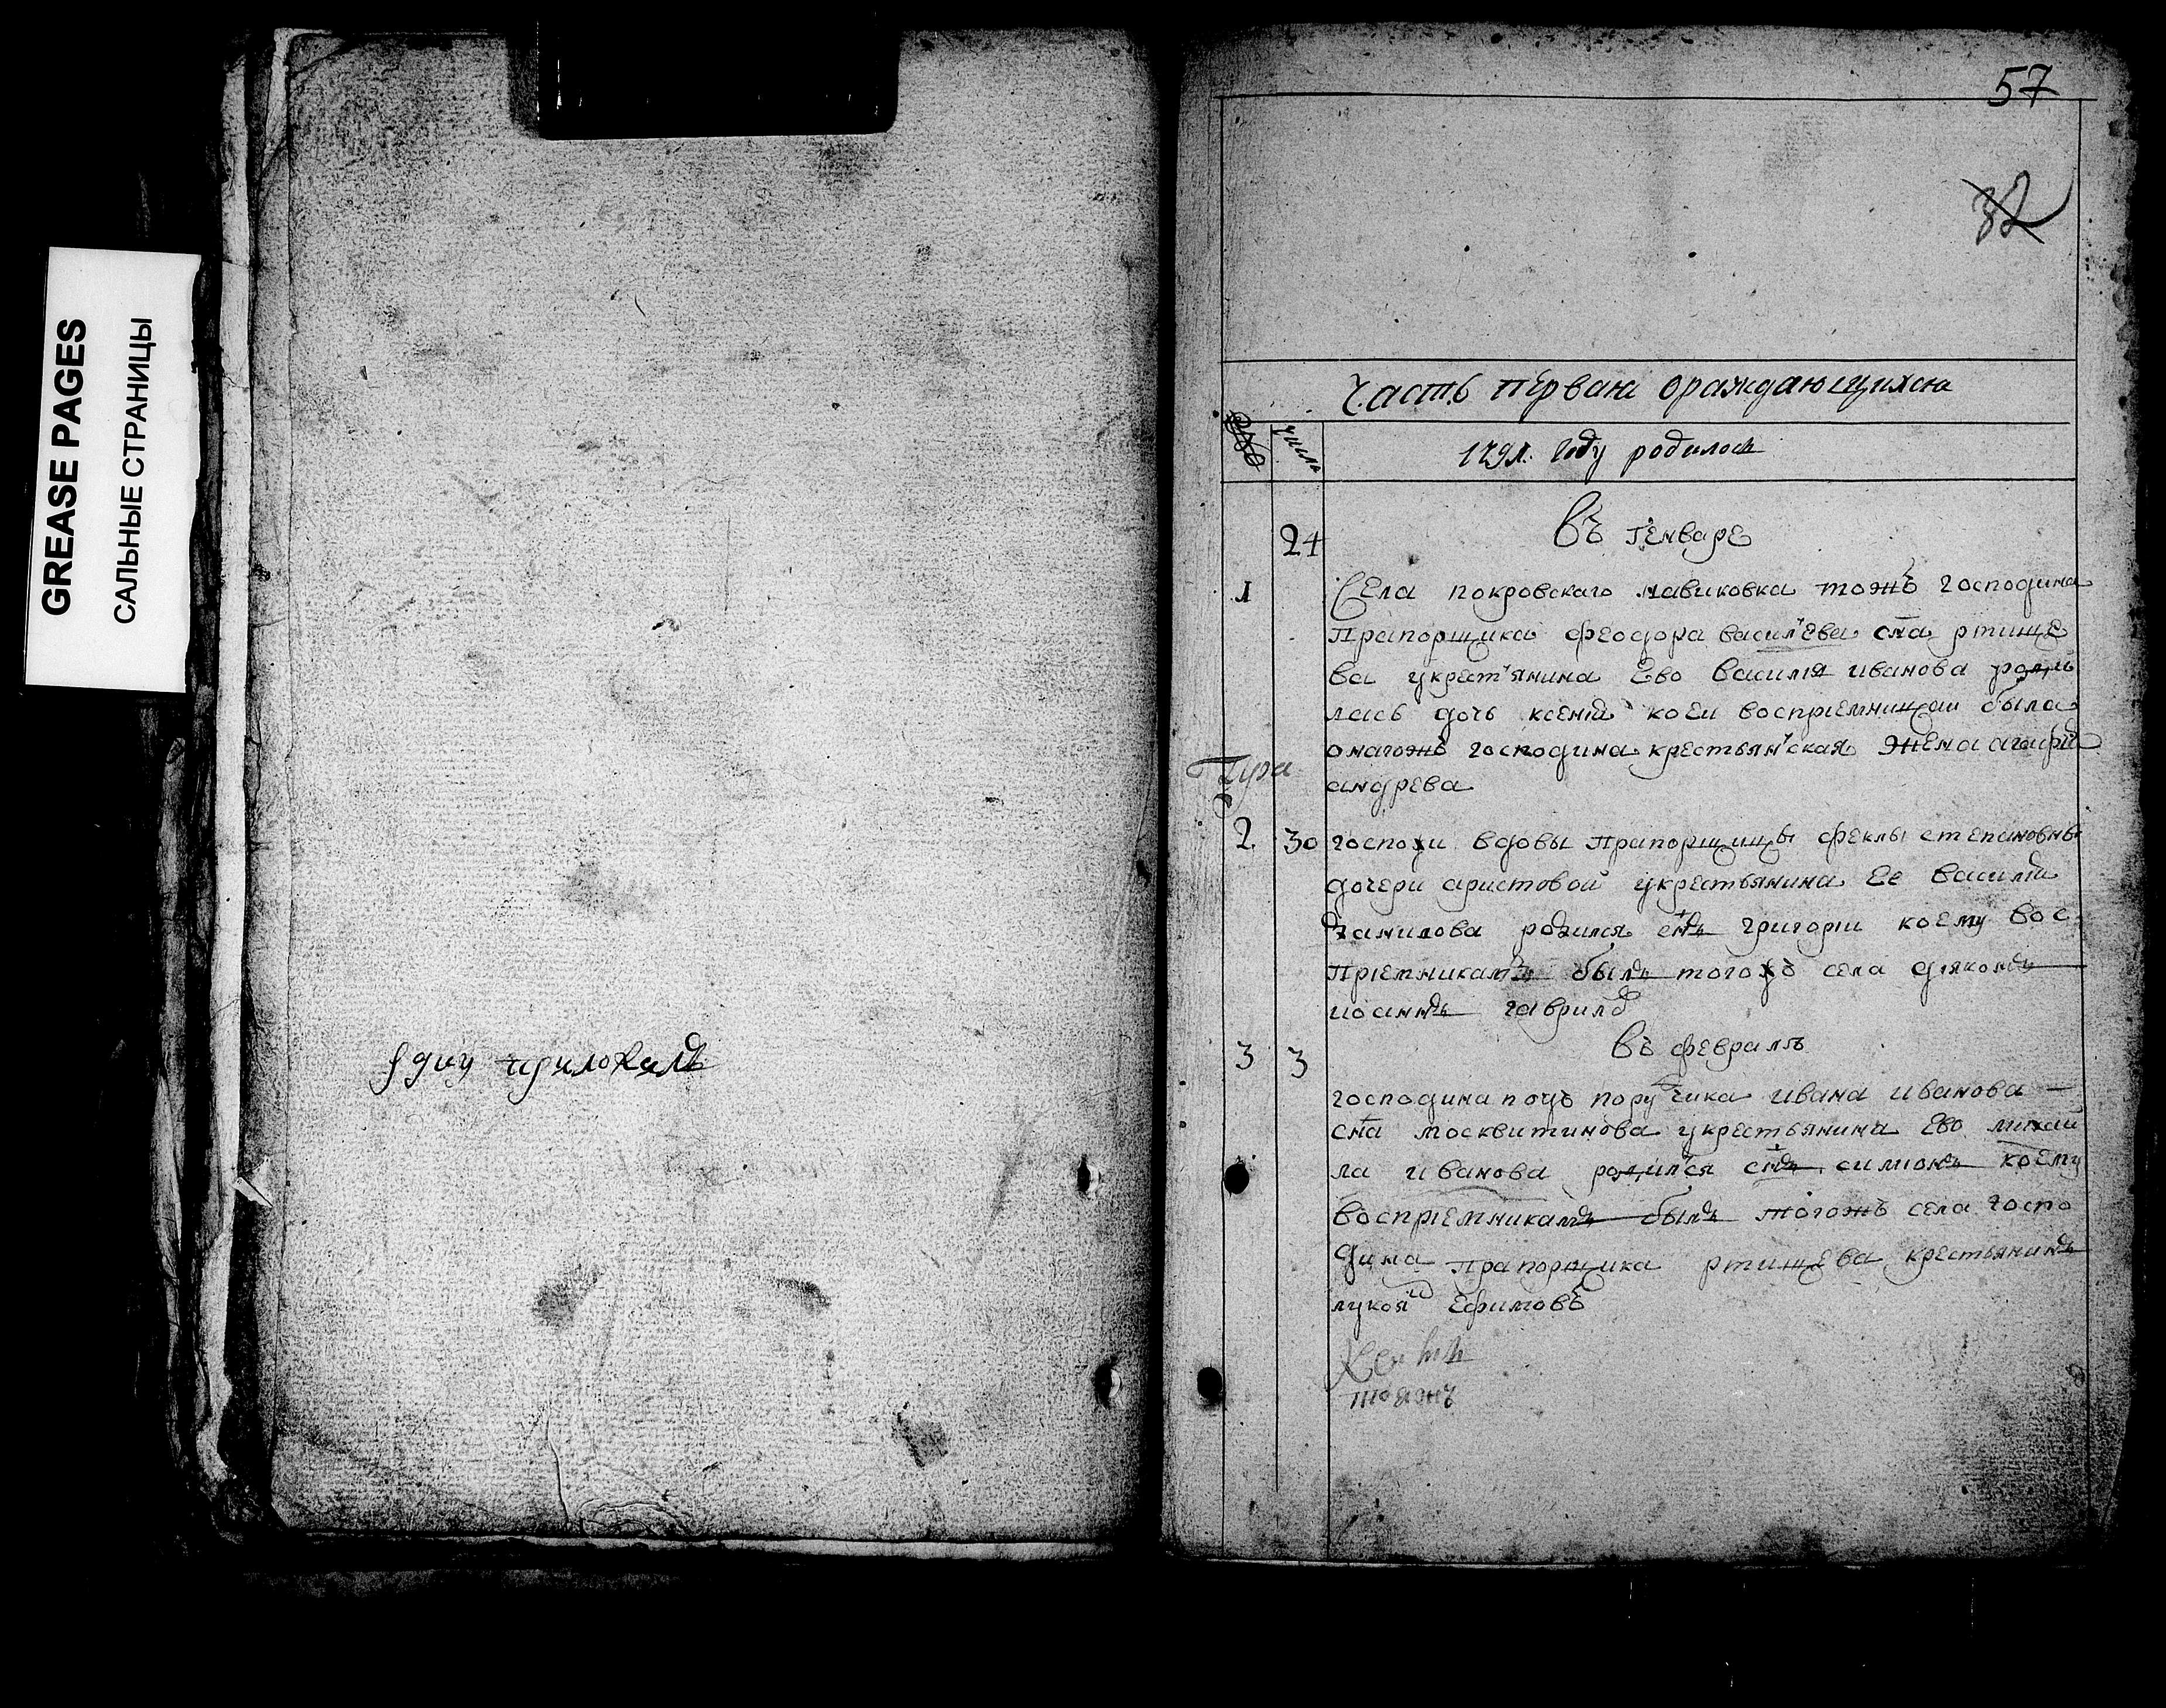 GREASE PAGES
САЛЬНЫЕ СТРАНИЦЫ
приложилъ
57
32
Часть первая ораждающихся
числа
1791. Году родилось
Въ генваре
24
1
Села покровскаго тожъ господина
Прапорщика феодора васильева сна ртище
ва укрестьянина Ево василия иванова роди
лась дочь ксения коеи восприемницаи была
оногожъ господина крестьянская жена агафия
андрева
2 30 госпожи вдовы прапорщицы феклы степановны
дочери аристовой укрестьянина Ее василия
данилова родился снъ григори коему вос
приемникамъ былъ тогожъ села дияконъ
иоаннъ гаврилв
Въ февралѣ
3 3
господина подъ поручика ивана иванова
сна москвитинова укрестьянина Ево михаи
ла иванова родился снъ симионъ коему
восприемникамъ былъ тогожъ села госпо
дина прапорщика ртищева крестьянинъ
Ефимовъ